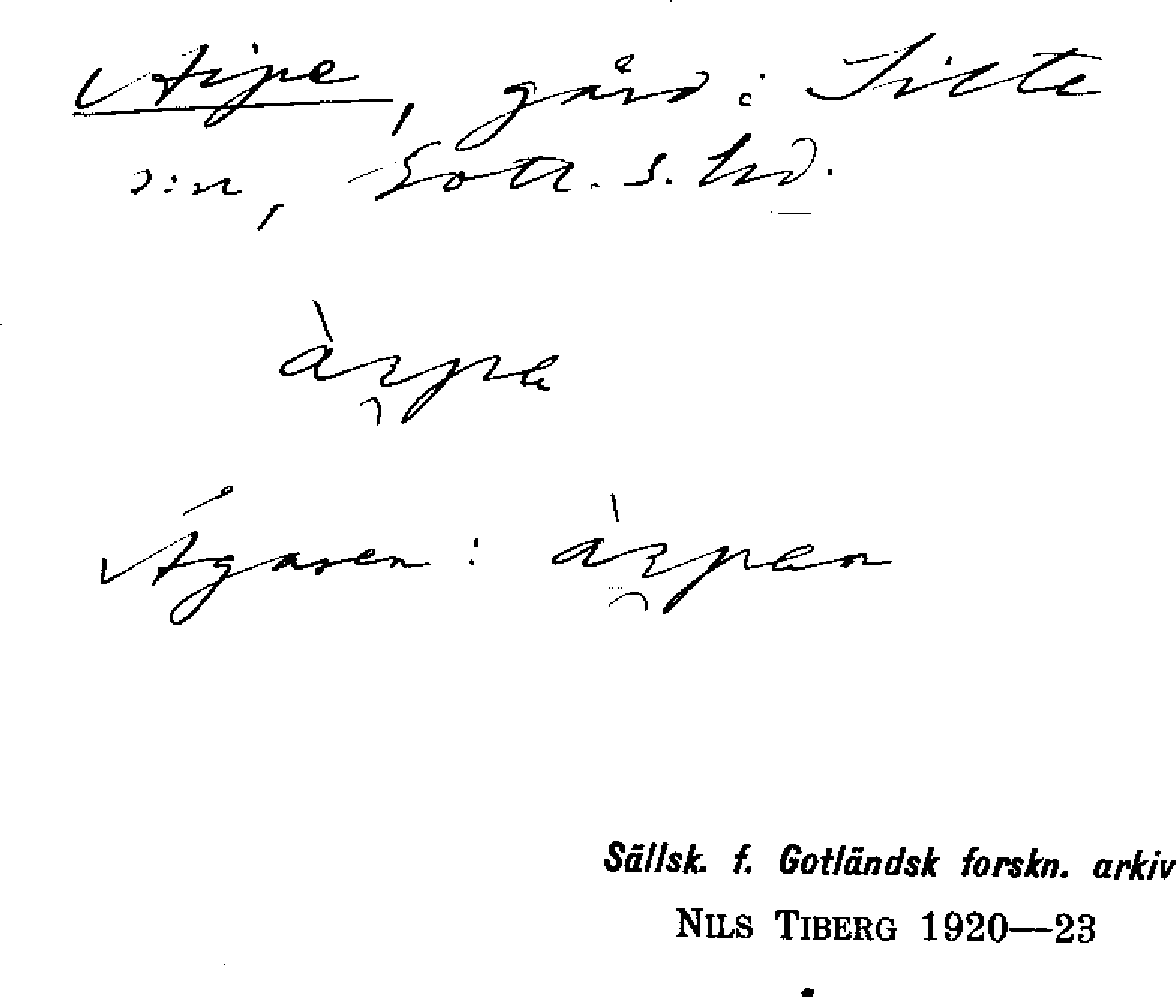 Aipe, gård i Silte
s:n, Gotl. s. hd.
àı̯pe
Ägaren: àı̯pen
Sällsk. f. Gotländsk forskn. arkiv
NILS TIBERG 1920—23